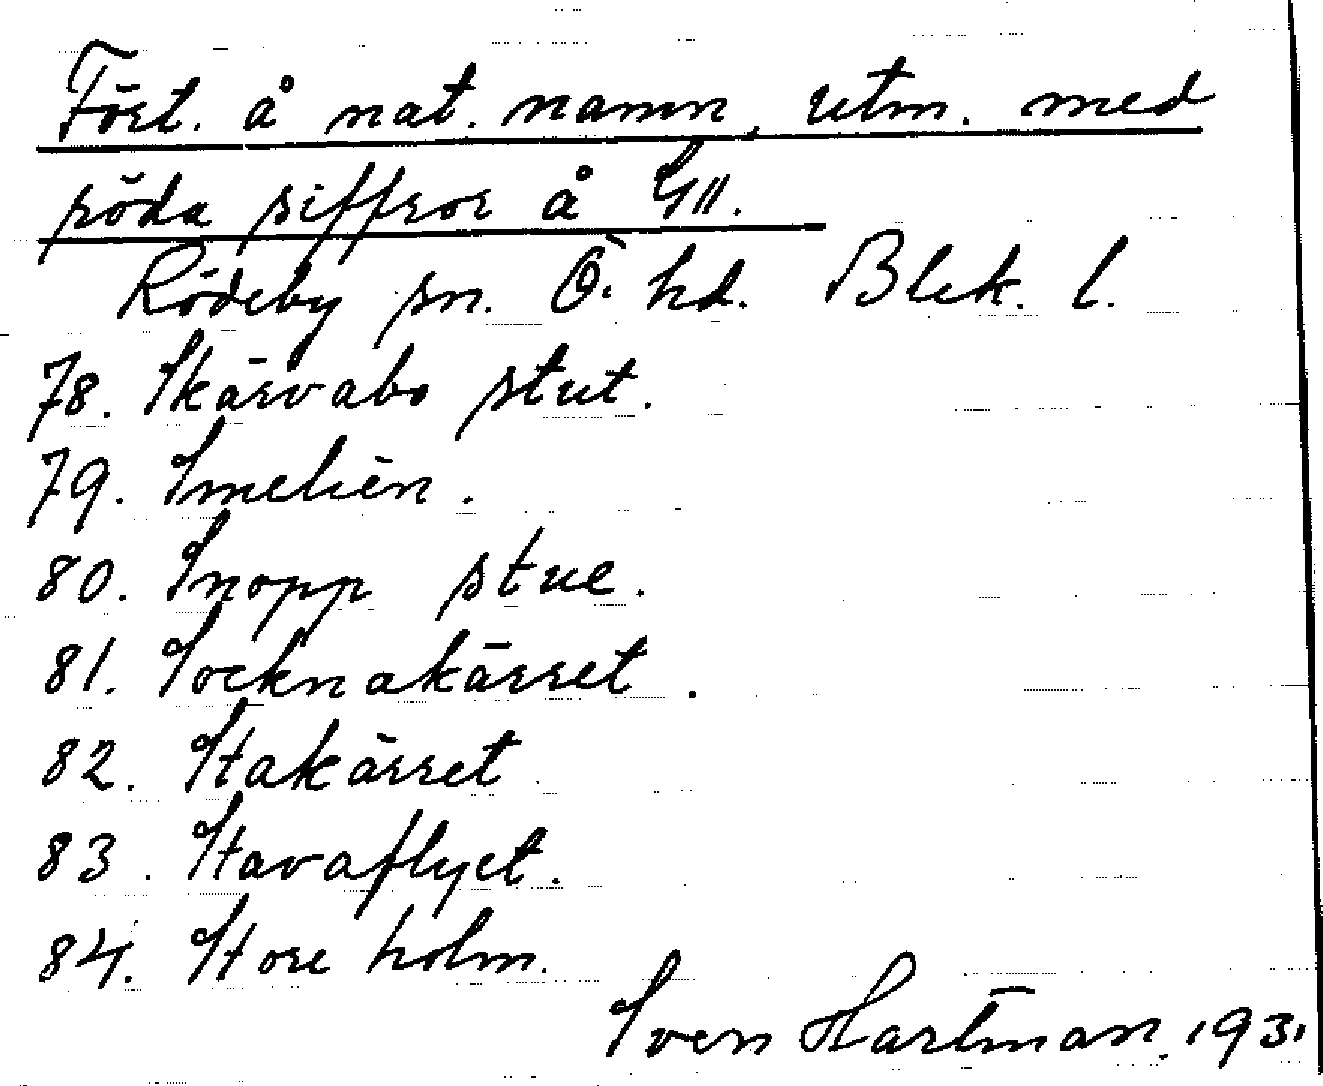 Fört. å nat. namn, utm. med
röda siffror å GII.
Rödeby sn. Ö. hd. Blek. l.
78. Skärvabo stut.
79. Smelién.
80. Snopp stue.
81. Socknakärret.
82. Stakärret
83. Stavaflyet.
84. Store holm.
Sven Hartman, 1931